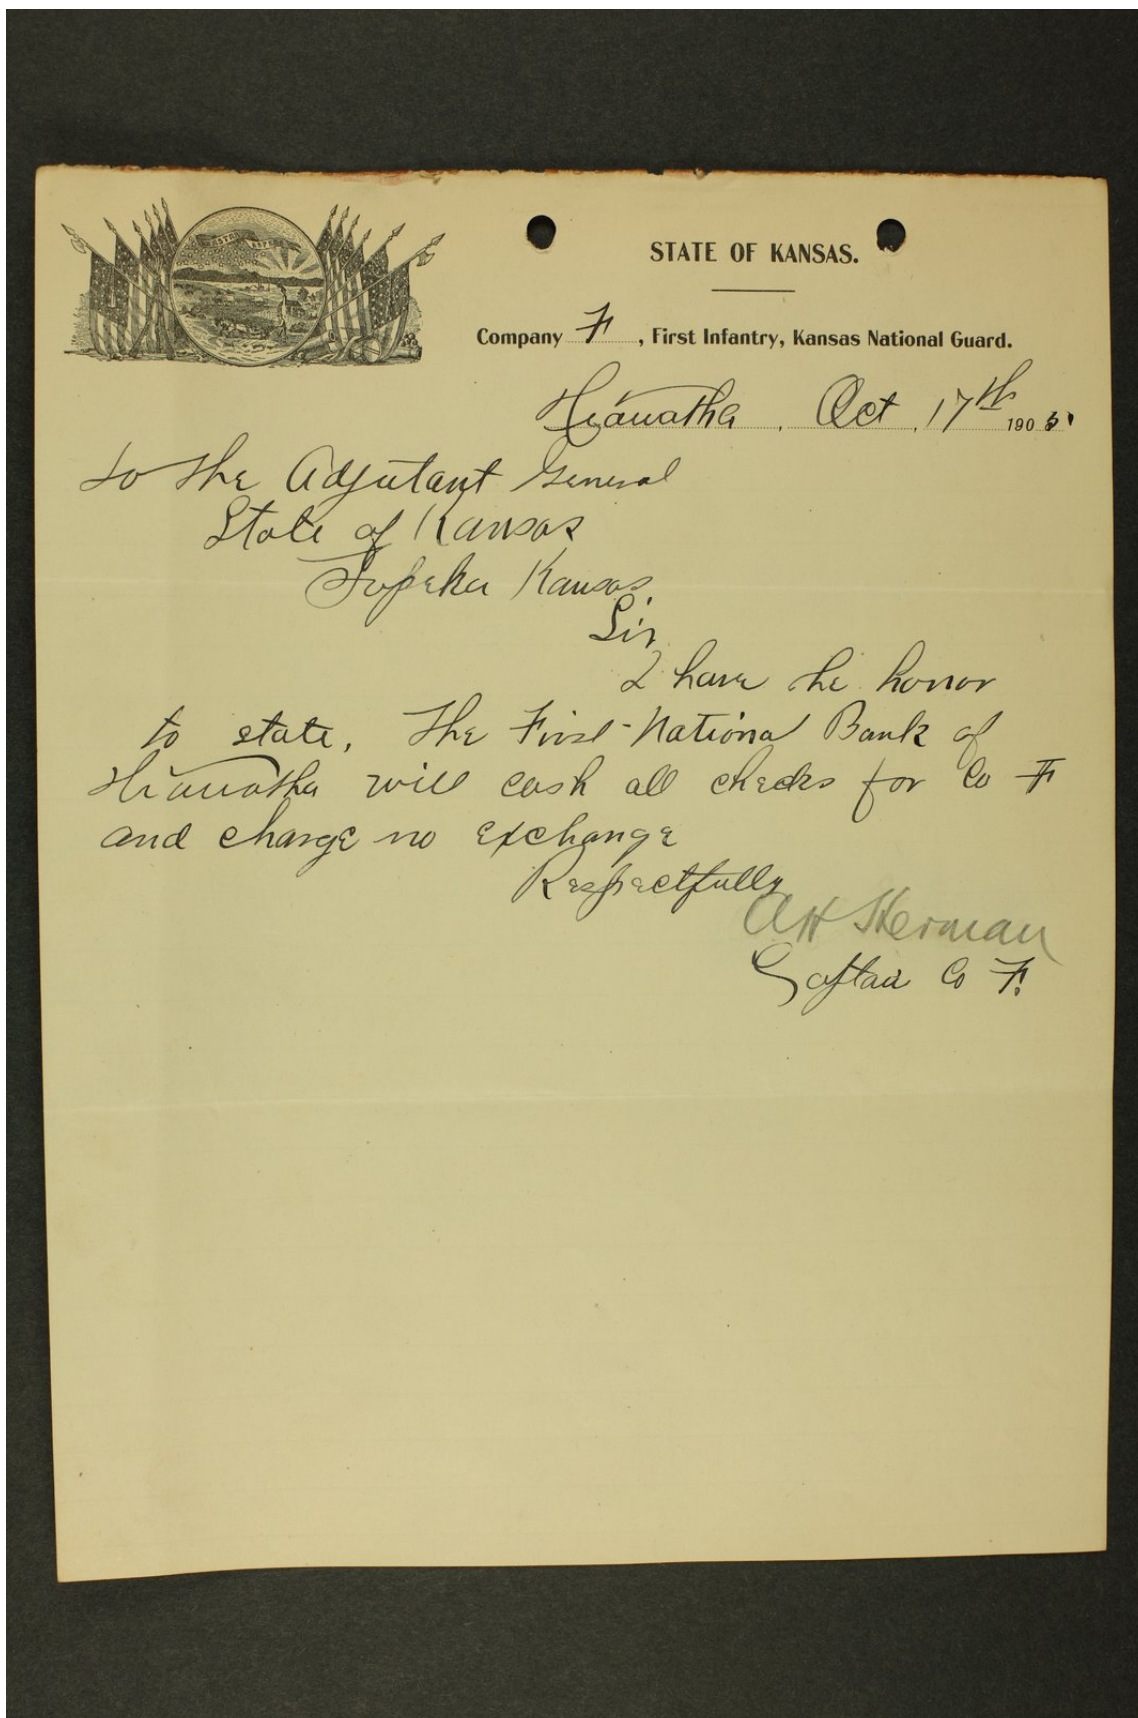 STATE OF KANSAS.
Company F, First Infantry, Kansas National Guard.
Hiawatha, Oct, 17th 1905
to the Adjutant General
State of Kansas
Topeka Kansas.
Sir,
I have the honor
to state, The First National Bank of
Hiawatha will cash all checks for Co F
and charge no exchange
Respectfully
AH Herman
Captain Co F.